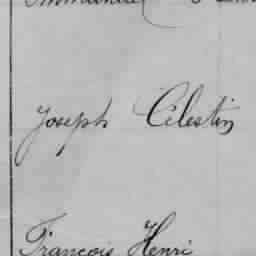 Joseph Celestin
François Henri